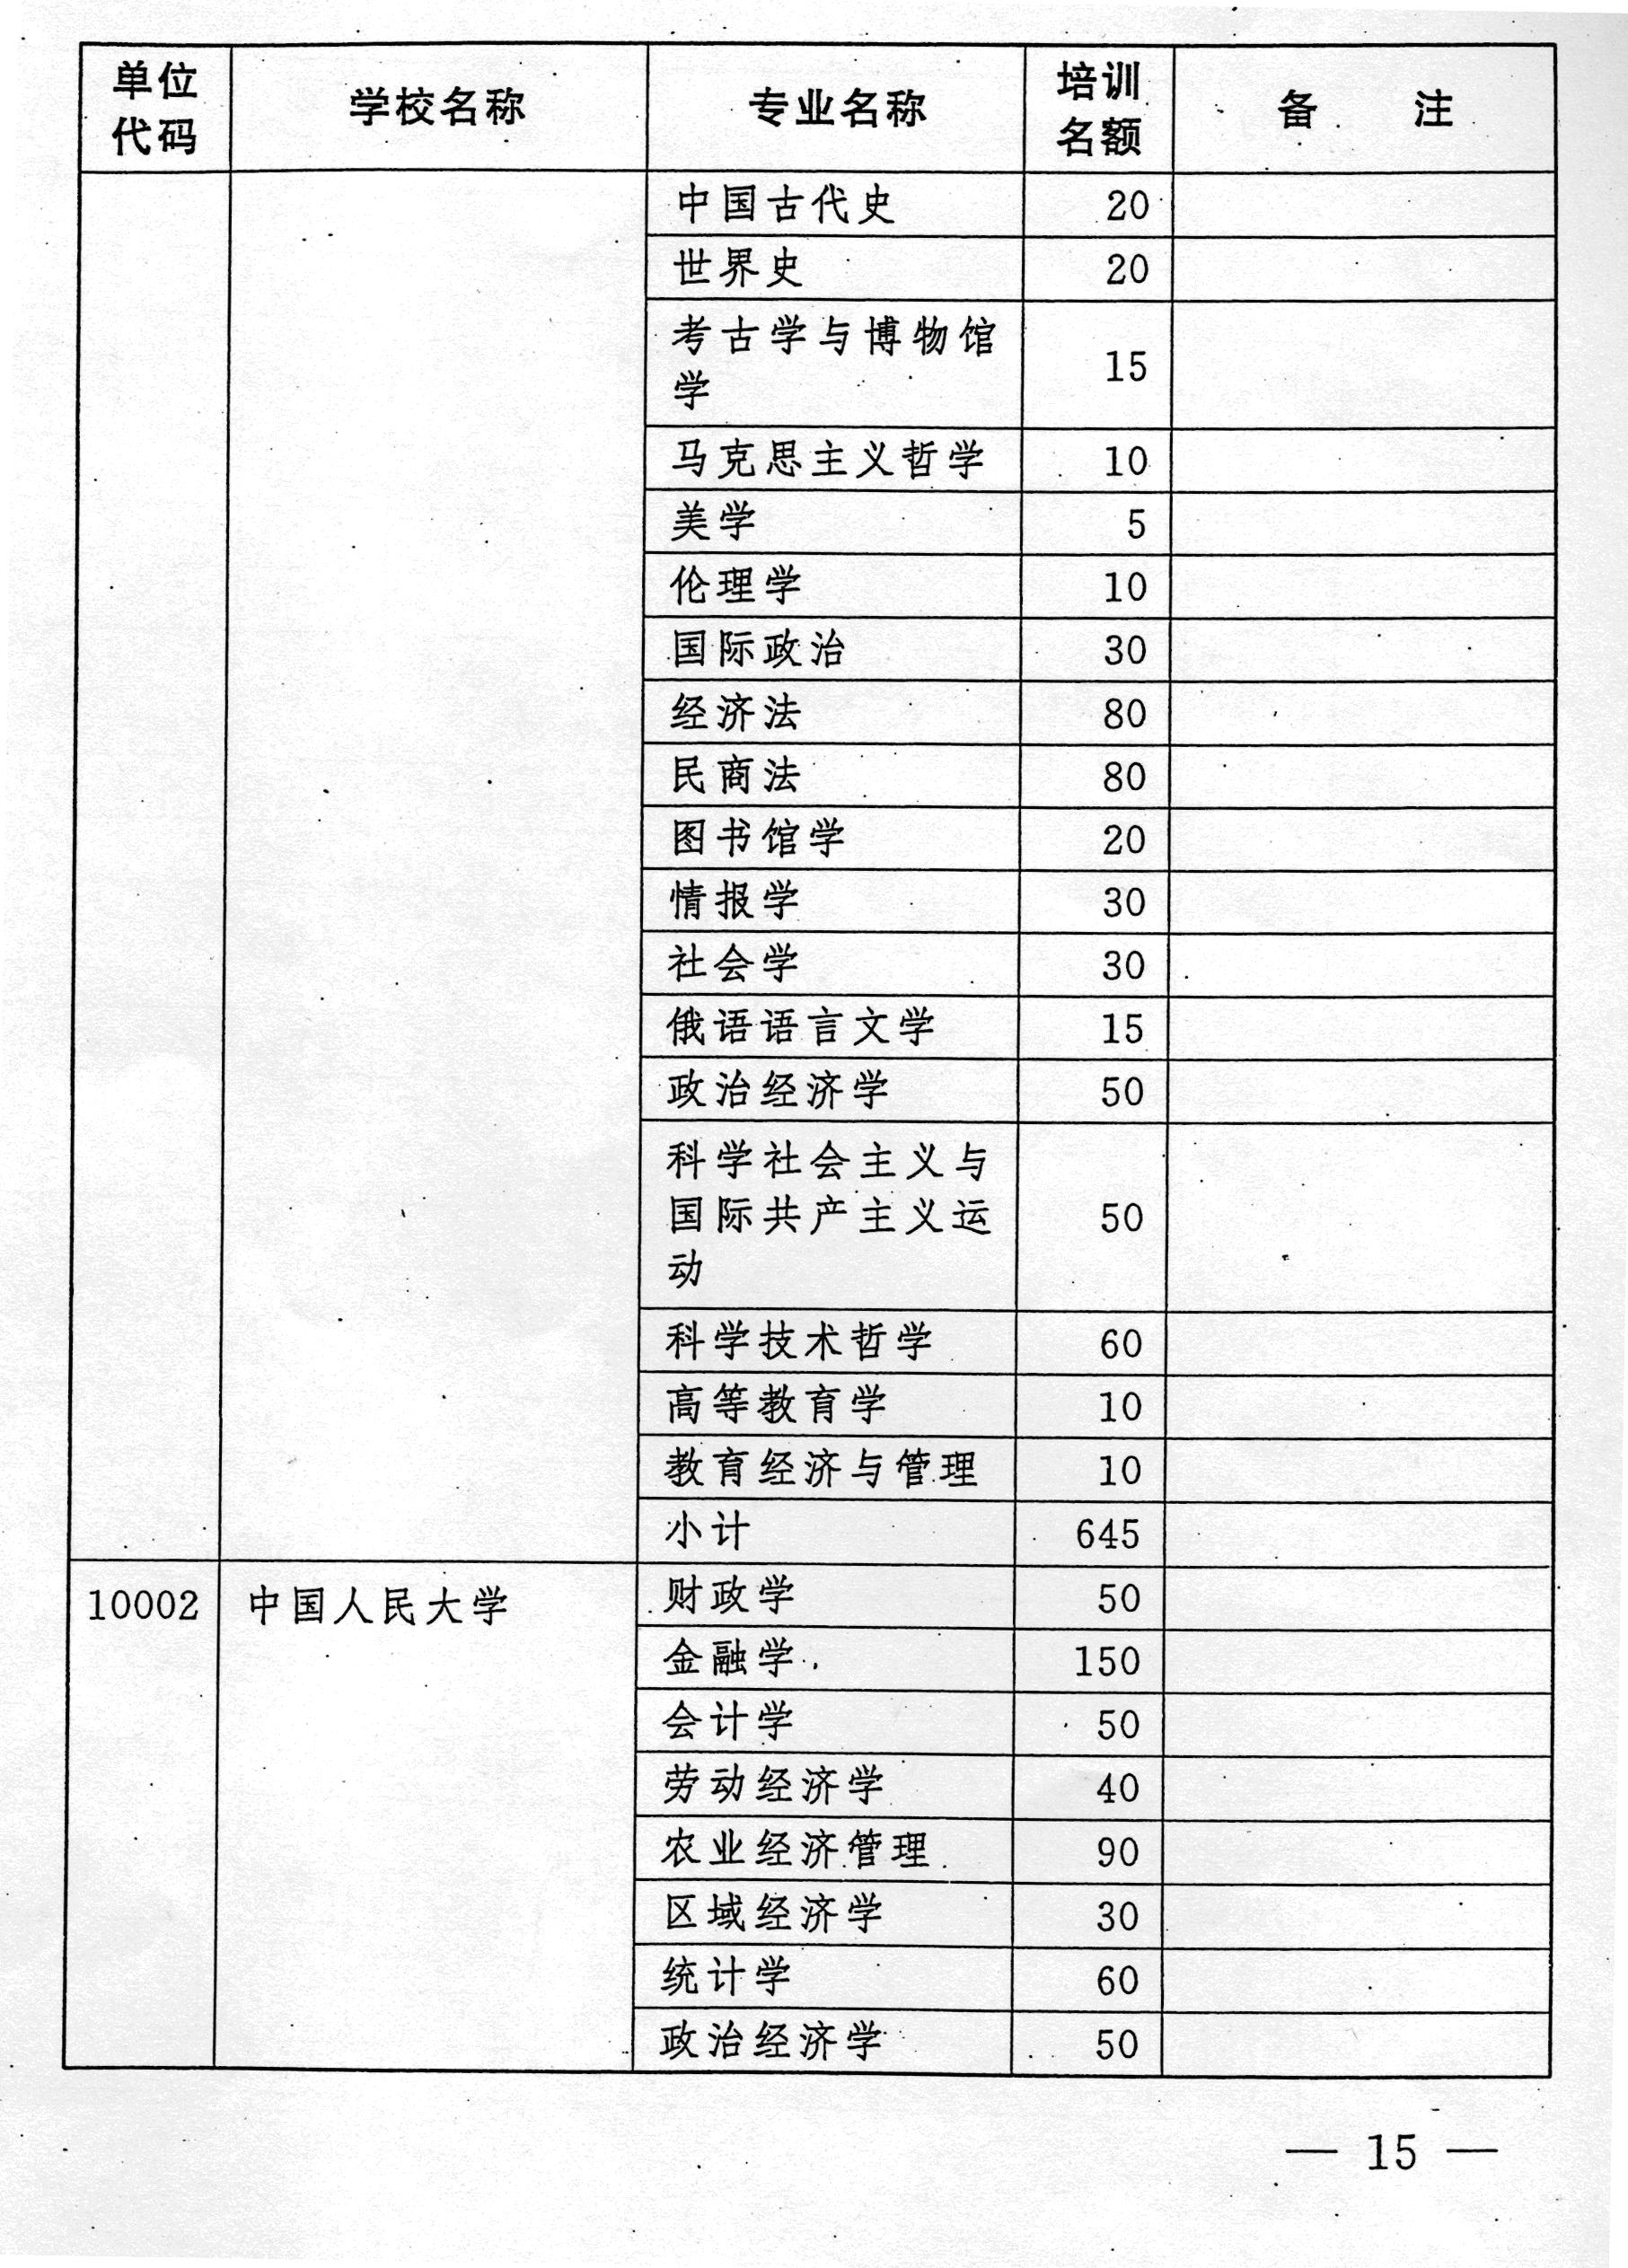 单位代码 学校名称 专业名称 培训名额 备注
中国古代史 20
世界史 20
考古学与博物馆
学 15
马克思主义哲学 10
美学 5
伦理学 10
国际政治 30
经济法 80
民商法 80
图书馆学 20
情报学 30
社会学 30
俄语语言文学 15
政治经济学 50
科学社会主义与
国际共产主义运 50
动
科学技术哲学 60
高等教育学 10
教育经济与管理 10
小计 645
10002 中国人民大学 财政学 50
金融学 150
会计学 50
劳动经济学 40
农业经济管理 90
区域经济学 30
统计学 60
政治经济学 50
— 15 —